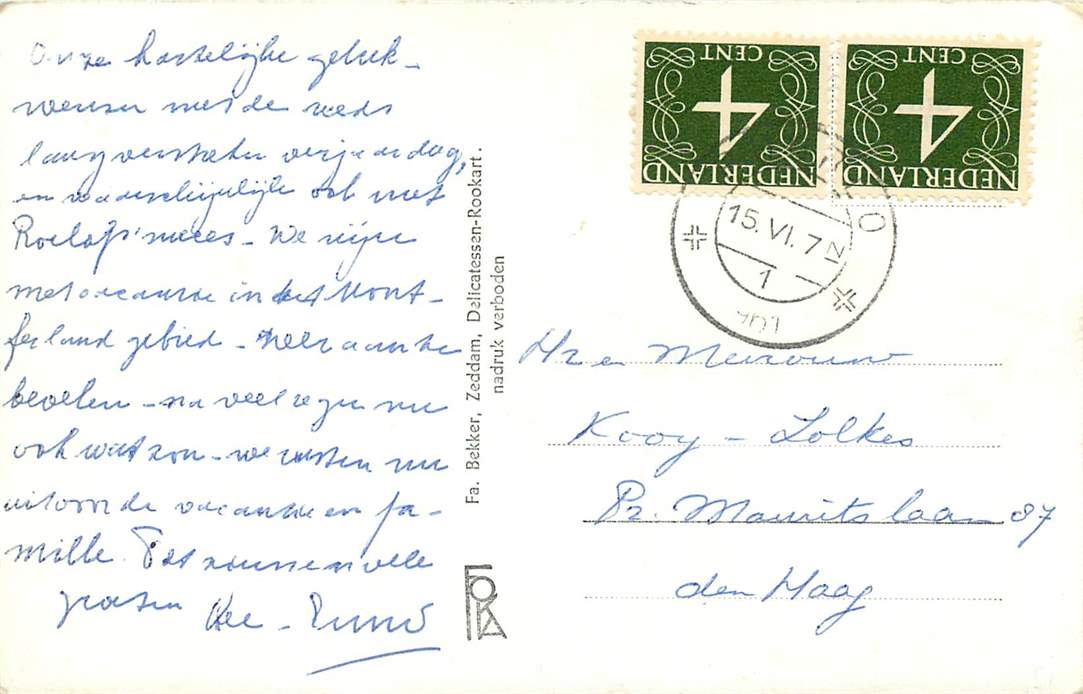 Onze hartelijke geluk-
wensen met de reeds
lang verstreken verjaardag,
en waarschijnlijk ook met
Roelofs' nieces - We zijn
met vacantie in het Mont-
ferland gebied - zeer aan te
bevelen - na veel regen nu
ook wat zon - we rusten nu
uit om de vacantie en fa-
milie. Tot ziens en vele
groeten
Fa. Bekker, Zeddam, Delicatessen-Rookart.
nadruk verboden
FOKA
NEDERLAND
4
CENT
NEDERLAND
4
CENT
15.VI.7
1
Hr en Mevrouw
Kooy - Lolkes
Pr. Maurits laan 87
den Haag